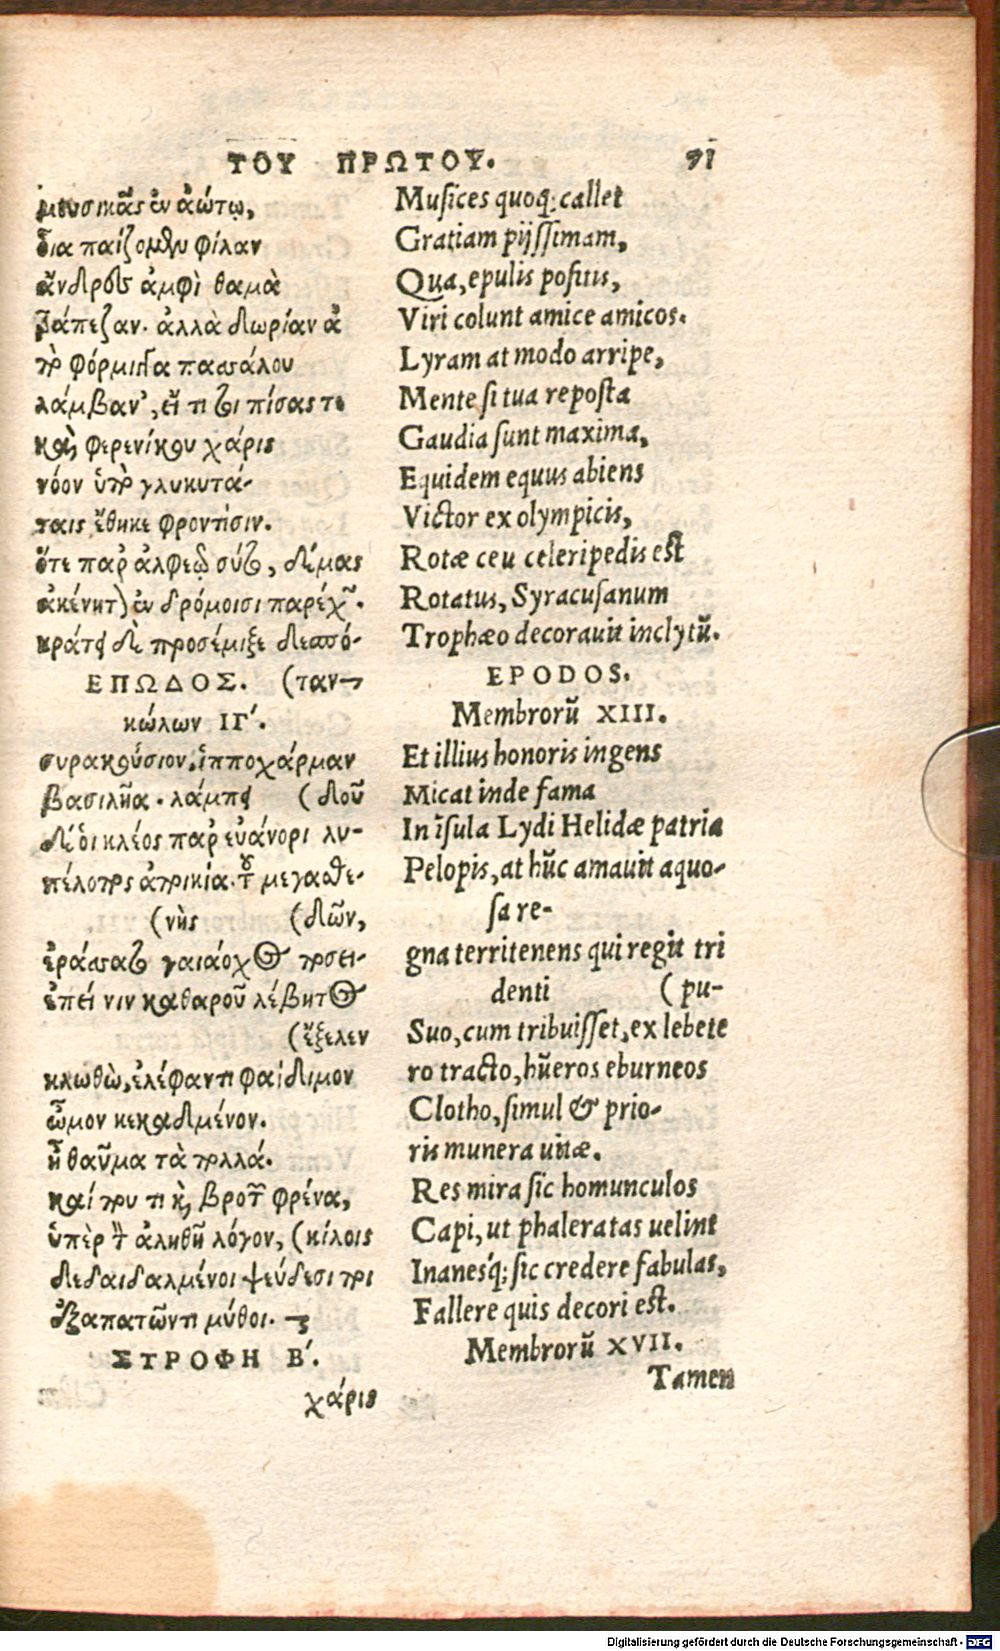 ΤΟΥ ΠΡΩΤΟΥ. 71
μουσικᾶς ἐν ἀώτῳ,
οἷα παίζομεν φίλαν
ἄνδρες ἀμφὶ θαμὰ
τράπεζαν. ἀλλὰ δωρίαν ἀ
πὸ φόρμιγγα πασσάλου
λάμβαν', εἴ τι τοι πίσας τε
καὶ φερενίκου χάρις
νόον ὑπὸ γλυκυτά-
ταις ἔθηκε φροντίσιν.
ὅτε παρ ἀλφεῷ σύτο, δέμας
ἀκέντητον ἐν δρόμοισι παρέχων.
κράτει δὲ προσέμιξε δεσπό-
ΕΠΩΔΟΣ. (ταν
κώλων ΙΓ'.
συρακούσιον, ἱπποχάρμαν
βασιλῆα. λάμπει (δοῦ
δέ οἱ κλέος παρ εὐάνορι λυ-
πέλοπος ἀποικίᾳ. τοῦ μεγασθε-
(νὴς (δῶν,
ἐράσσατο γαιάοχος ποσει-
ἐπεί νιν καθαροῦ λέβητος
(ἔξελεν
κλωθὼ, ἐλέφαντι φαίδιμον
ὦμον κεκαδμένον.
ἦ θαῦμα τὰ πολλά.
καί που τι καὶ βροτῶν φρένα,
ὑπὲρ τὸν ἀληθῆ λόγον, (κίλοις
δεδαιδαλμένοι ψεύδεσι ποι
ἐξαπατῶντι μύθοι.
ΣΤΡΟΦΗ Β'.
χάρις
Musices quoq; callet
Gratiam pijssimam,
Qua, epulis positis,
Viri colunt amice amicos.
Lyram at modo arripe,
Mente si tua reposta
Gaudia sunt maxima,
Equidem equus abiens
Victor ex olympicis,
Rotæ ceu celeripedis est
Rotatus, Syracusanum
Trophæo decorauit inclytũ.
EPODOS.
Membrorũ XIII.
Et illius honoris ingens
Micat inde fama
In ĩsula Lydi Helidæ patria
Pelopis, at hũc amauit aquo-
sa re-
gna territenens qui regit tri
denti (pu-
Suo, cum tribuisset, ex lebete
ro tracto, hũeros eburneos
Clotho, simul & prio-
ris munera uitæ.
Res mira sic homunculos
Capi, ut phaleratas uelint
Inanesq́; sic credere fabulas,
Fallere quis decori est.
Membrorũ XVII.
Tamen
Digitalisierung gefördert durch die Deutsche Forschungsgemeinschaft - DFG